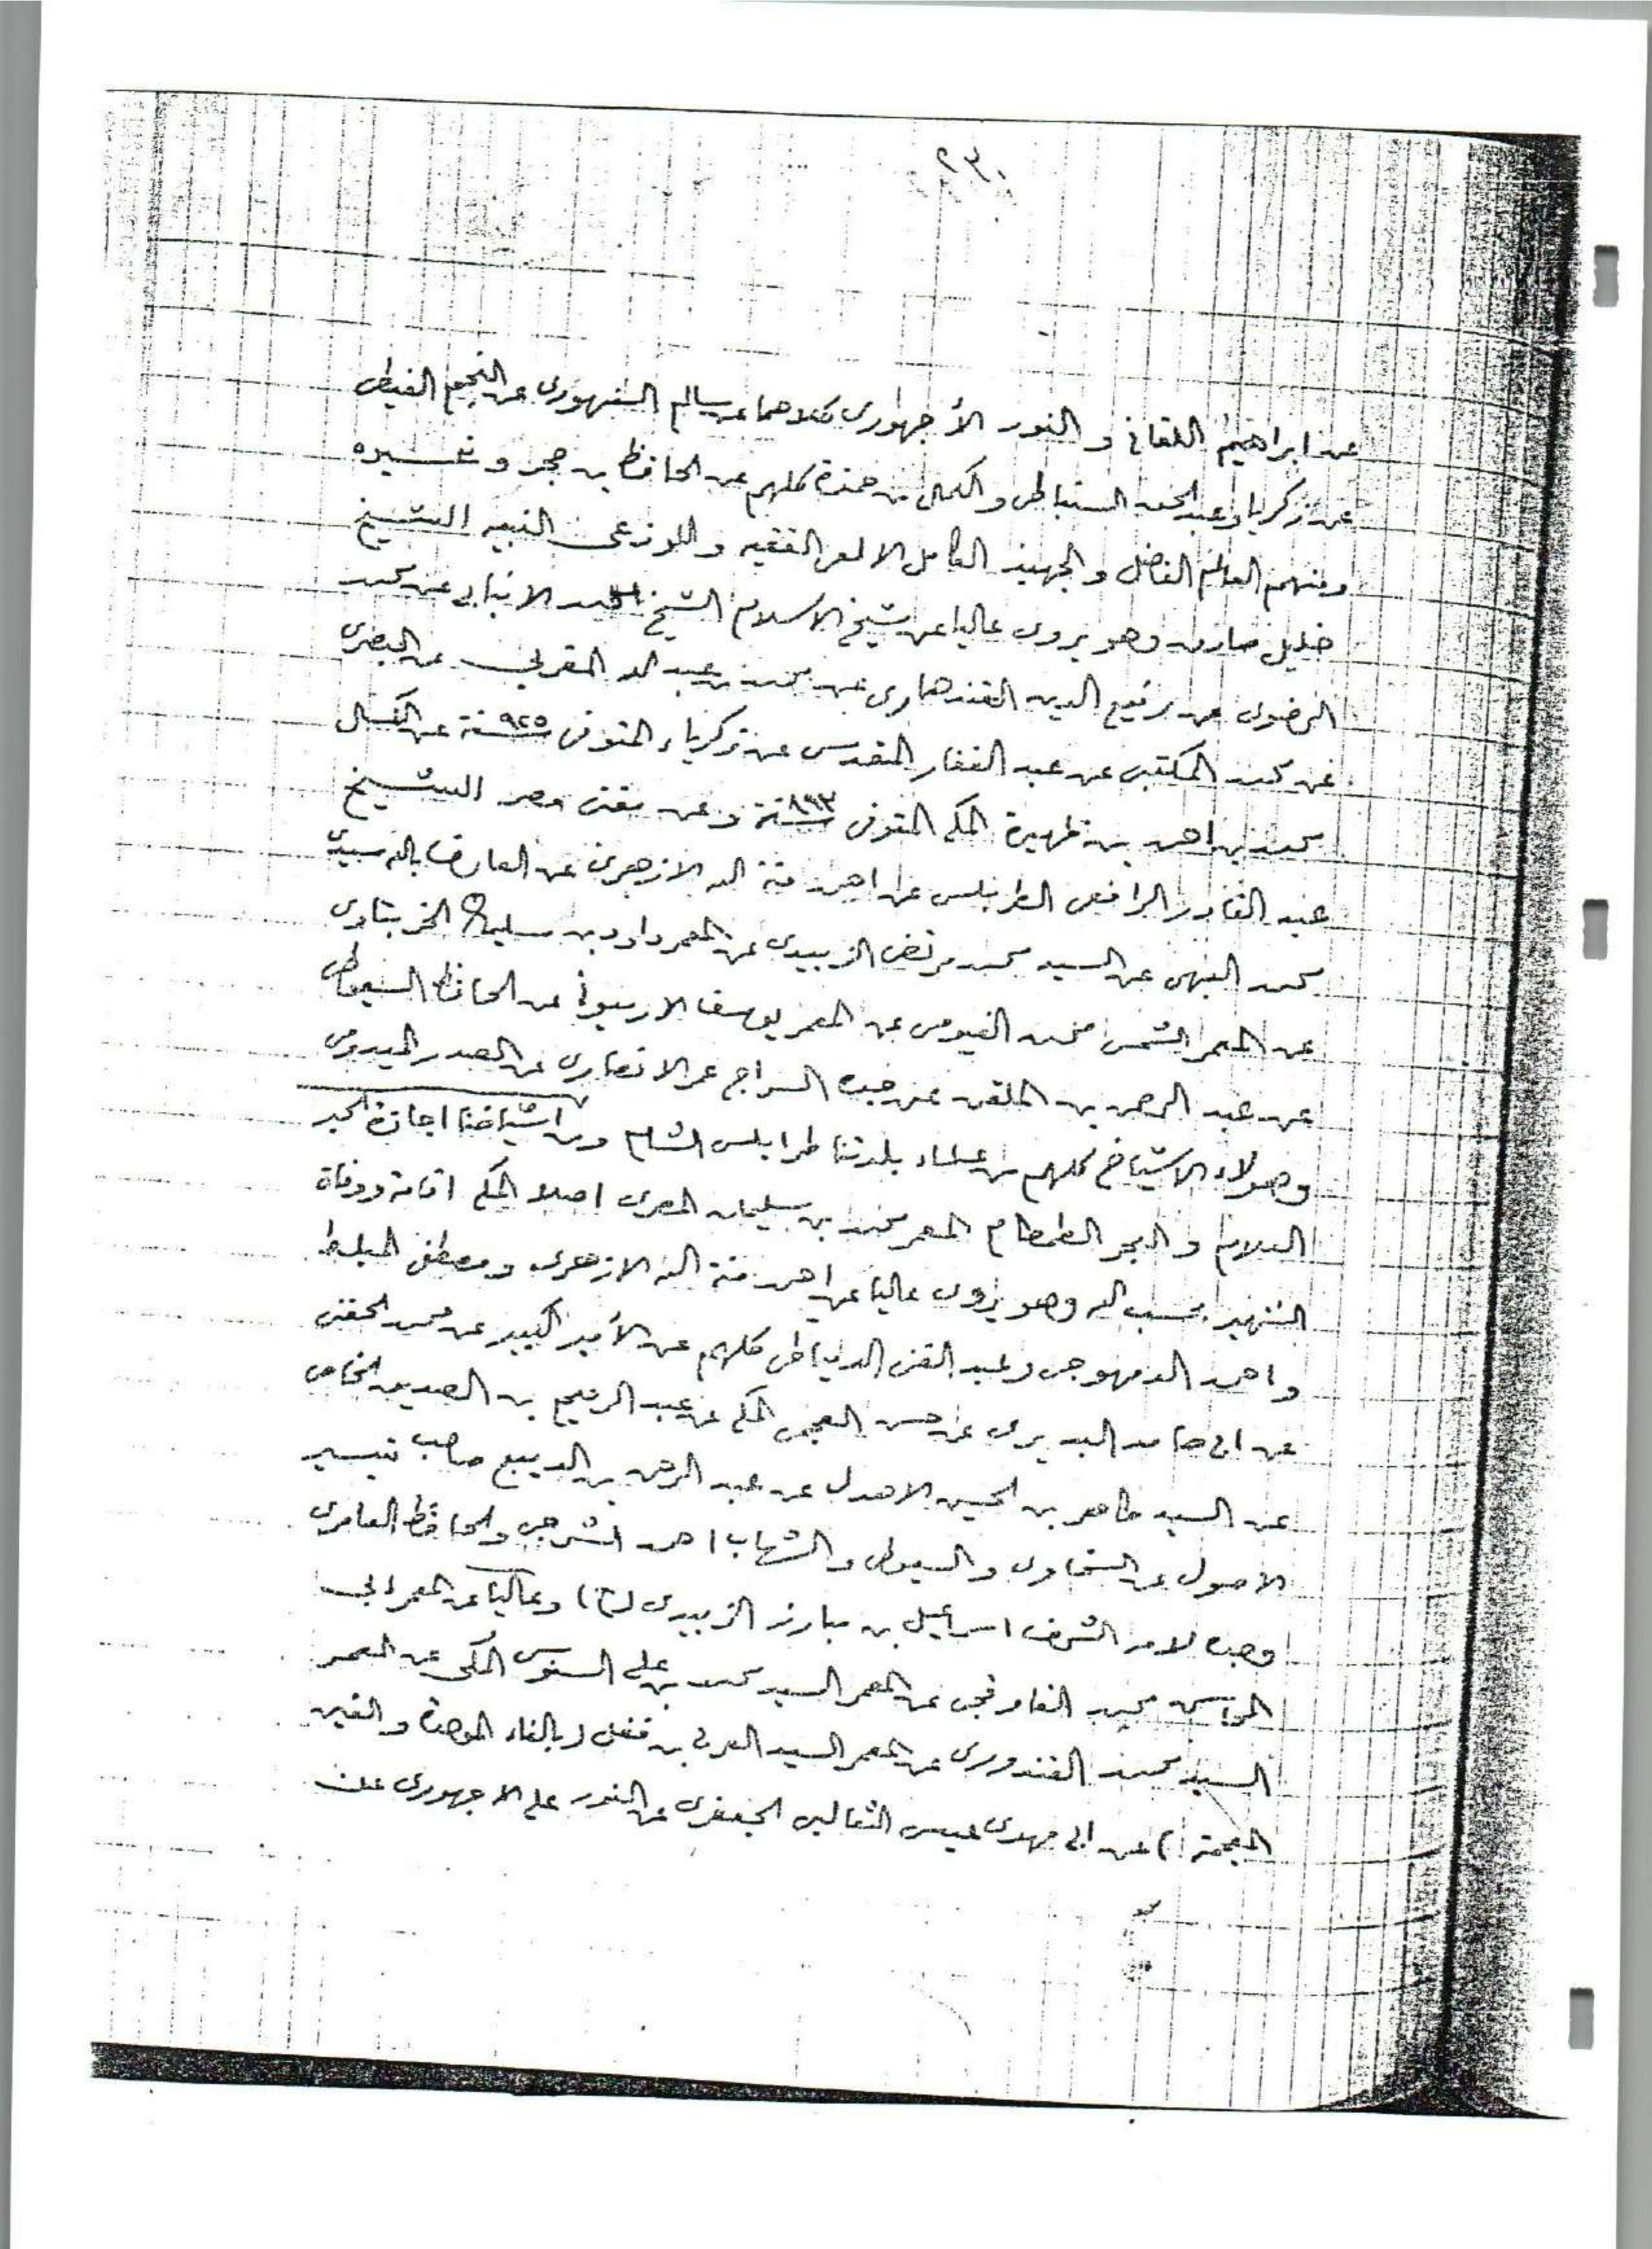 ٢٣٠
عن ابراهيم اللقاني و النور الأجهوري كلاهما عن سالم السنهوري عن النجم الغيطى
عن زكريا وعبد الحق السنباطى والكمال بن حمزة كلهم عن الحافظ بن حجر وغيره
ومنهم العالم الفاضل والجهبذ الكامل الالمعي الفقيه واللوذعى النبيه الشيخ
خليل صادق وهو يروى عاليا عن شيخ الاسلام الشيخ محمد الانبابي عن محمد
الرضوى عن رفيع الدين القندهارى عن محمد بن عبد الله المغربى عن البصرى
عن محمد المكتبى عن عبد الغفار المقدسى عن زكرياء المتوفى سنة ٩٢٥ عن الكمال
محمد بن احمد بن ظهيرة المكي المتوفى سنة وعن مفتى مصر الشيخ
عبد القادر الرافعى الطرابلسى عن احمد منة الله الازهرى عن العارف بالله سيدى
محمد البهى عن السيد محمد مرتضى الزبيدى عن المعمر داود بن سليمان الخربتاوى
عن المعمر الشمس محمد الفيومى عن المعمر يوسف الارميونى عن الحافظ السيوطى
عن عبد الرحمن بن الملقن عن جده السراج عمر الانصارى عن الصدر الميدومى
وهولاء الاشياخ كلهم من علماء بلدتنا طرابلس الشام ومن اشياخنا اجازة الحبر
العلام والبحر الطمطام المعمر محمد بن سليمان المصرى اصلا المكي اقامة ووفاة
الشهير بحسب الله وهو يروى عاليا عن احمد منة الله الازهرى ومصطفى المبلط
واحمد الدمهوجى وعبد الغنى الدمياطى كلهم عن الأمير الكبير عن محمد الحفنى
عن ابى حامد البديرى عن حسن العجيمى المكي عن عبد الرحيم بن الصديق الخاص
عن السيد طاهر بن الحسين الاهدل عن عبد الرحمن بن الديبع صاحب تيسير
الاصول عن السخاوى والسيوطى والشهاب احمد الشرجى والحافظ العامرى
وجده لامه الشرف اسماعيل بن مبارز الزبيدى (ح) وعاليا عن المعمر ابى
المحاسن محمد القاوقجى عن المعمر السيد محمد بن على السنوسى المكى عن المعمر
السيد محمد القندورى عن المعمر السيد العربى بن فغل (بالفاء الموحدة والغين
المعجمة) عن ابى مهدى عيسى الثعالبى الجعفرى عن النور على الاجهورى عن